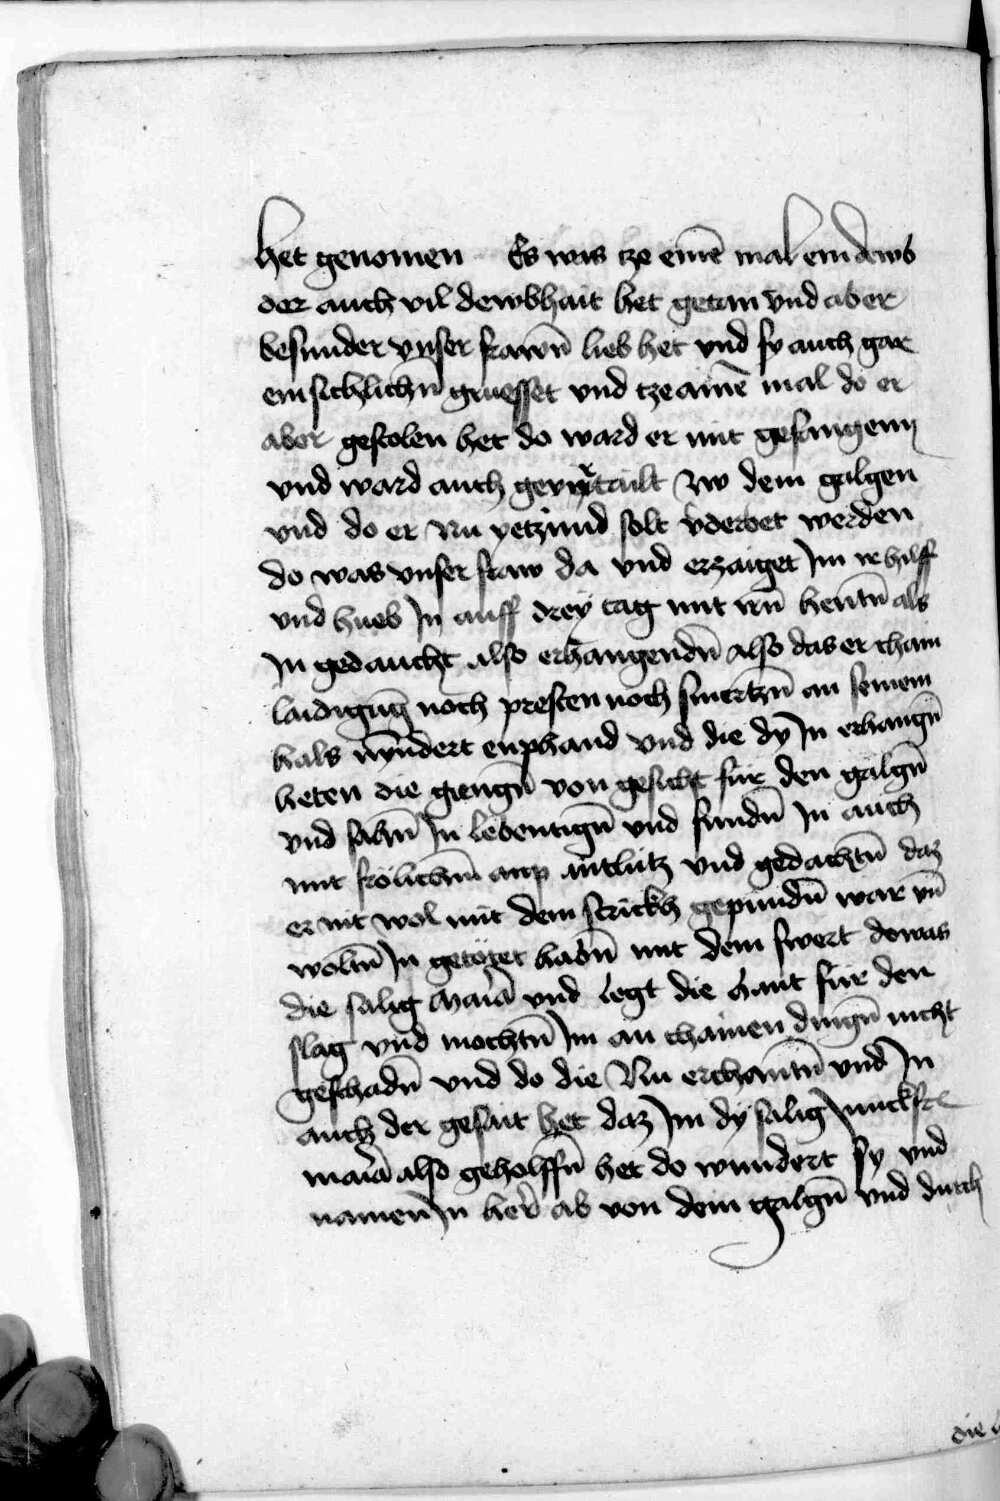 het genomen Es was tze einē mal ein dewb
der auch vil dewbhait het getan vnd aber
besunder vnser frawn̄ lieb het vnd sy auch gar
emsichlichn̄ gruesset vnd tze ainē mal do er
aber gestolen het do ward er mit gefangenn
vnd ward auch gevrtailt zw dem galgen
vnd do er Nu yetzund solt vderbet werden
do was vnser fraw da vnd erzaiget Im ir hilff
vnd hueb In auff drey tag mit irn̄ hentn̄ als
In gedaucht also erhangendn̄ also das er chain
laidigung noch presten noch smertzn̄ an seinem
hals nyndert enphand vnd die dy In erhangn̄
heten die giengn̄ von gesicht für den galgn̄
vnd sahn̄ In lebentign̄ vnd fundn̄ In auch
mit frölichm̄ antlütz vnd gedachtn̄ daz
er nit wol mit dem strickh gepundn̄ war vn̄
woltn̄ In getötet habn̄ mit dem swert do was
die salig Maria vnd legt die hant für den
slag vnd mochtn̄ Im an chainen dingn̄ nicht
geschadn̄ vnd do die Nu erchantn̄ vnd In
auch der gesait het daz Im dy salig Junckfr
maria also geholffn̄ het do wundert sy vnd
namen In her ab von dem galgn̄ vnd durch
die